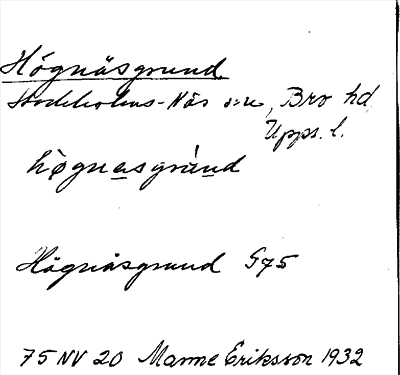 Högnäsgrund
Stockholms-Näs sn, Bro hd
Upps. l.
hògnasgrùnd
Högnäsgrund G75
75 NV 20 Manne Eriksson 1932